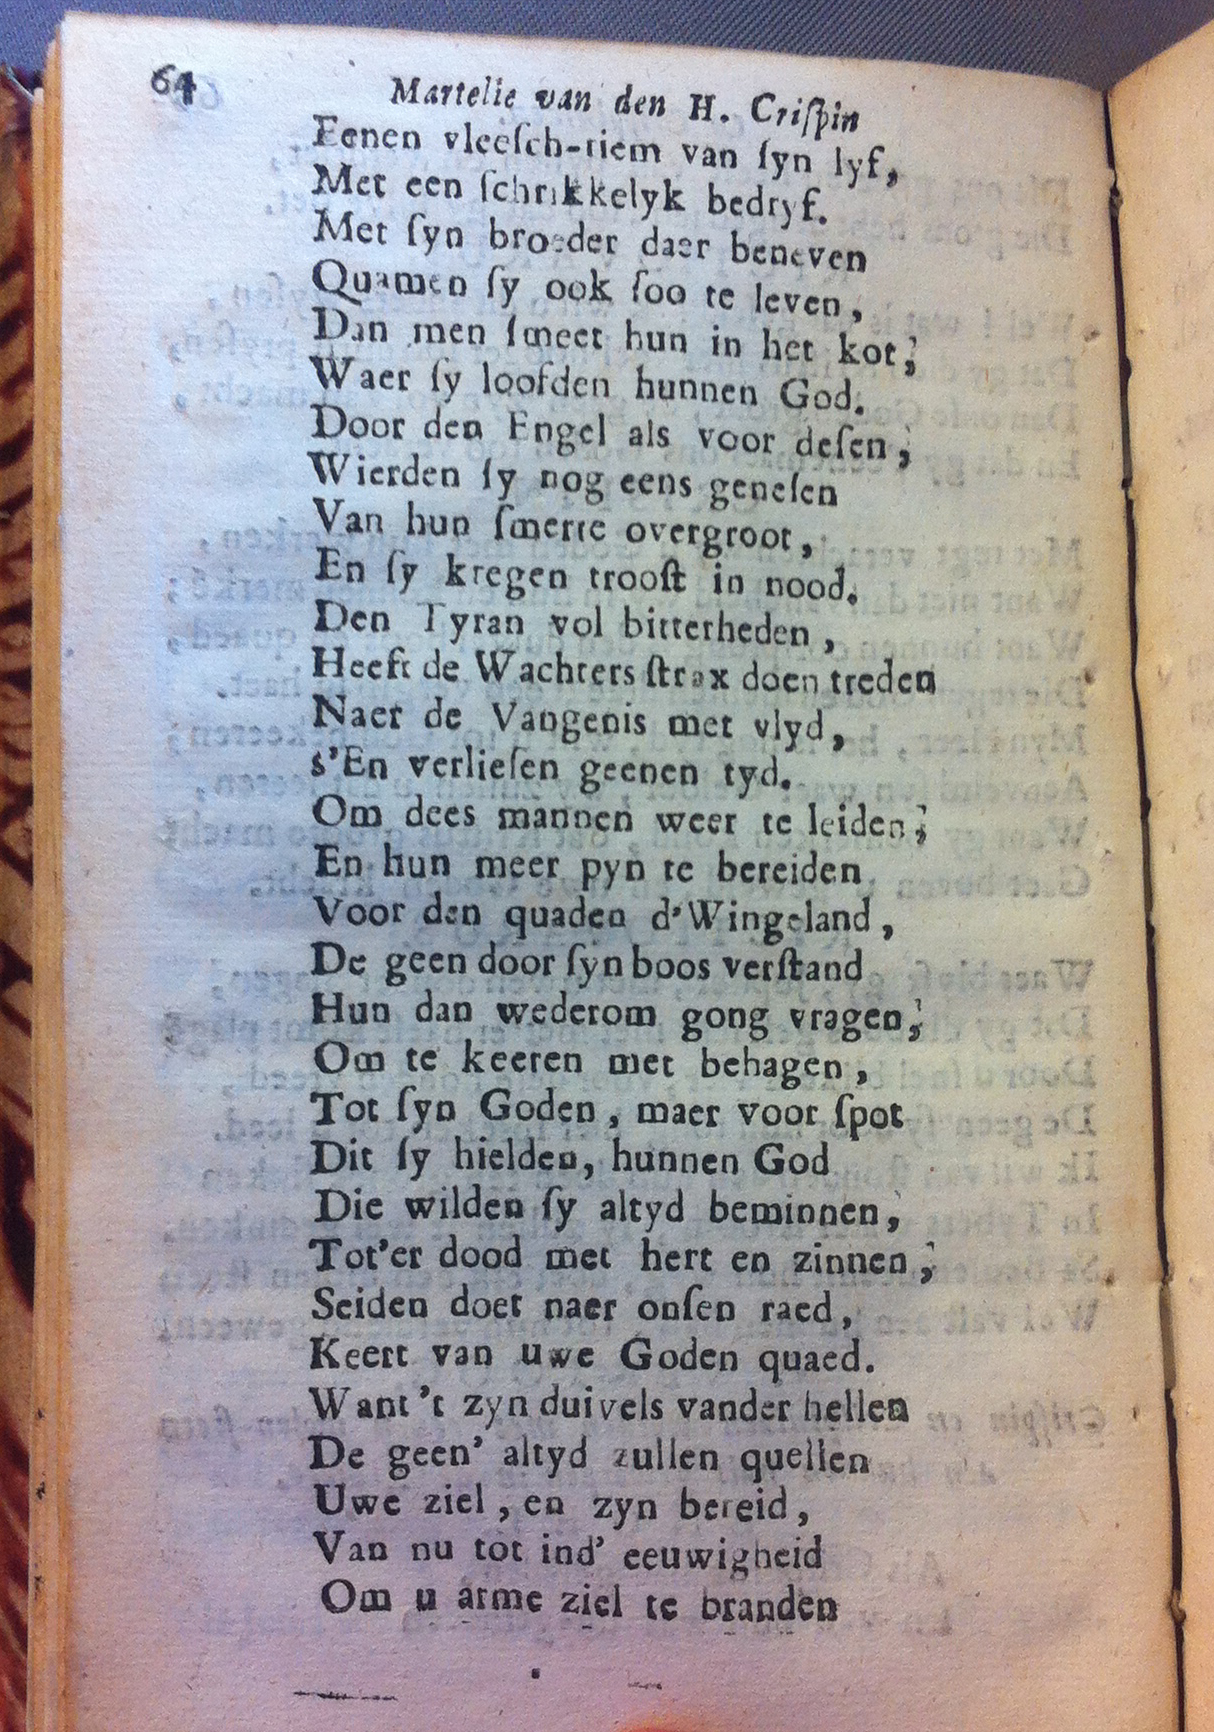 64
Martelie van den H. Criſpin
Eenen vleeſch-riem van ſyn lyf,
Met een ſchrikkelyk bedryf.
Met ſyn broeder daer beneven
Quamen ſy ook ſoo te leven,
Dan men ſmeet hun in het kot;
Waer ſy loofden hunnen God.
Door den Engel als voor deſen;
Wierden ſy nog eens geneſen
Van hun ſmerte overgroot,
En ſy kregen trooſt in nood.
Den Tyran vol bitterheden,
Heeft de Wachters ſtrax doen treden
Naer de Vangenis met vlyd,
s'En verlieſen geenen tyd.
Om dees mannen weer te leiden;
En hun meer pyn te bereiden
Voor den quaden d'Wingeland,
De geen door ſyn boos verſtand
Hun dan wederom gong vragen;
Om te keeren met behagen,
Tot ſyn Goden, maer voor ſpot
Dit ſy hielden, hunnen God
Die wilden ſy altyd beminnen;
Tot'er dood met hert en zinnen;
Seiden doet naer onſen raed,
Keert van uwe Goden quaed.
Want 't zyn duivels vander hellen
De geen' altyd zullen quellen
Uwe ziel, en zyn bereid,
Van nu tot ind' eeuwigheid
Om u arme ziel te branden